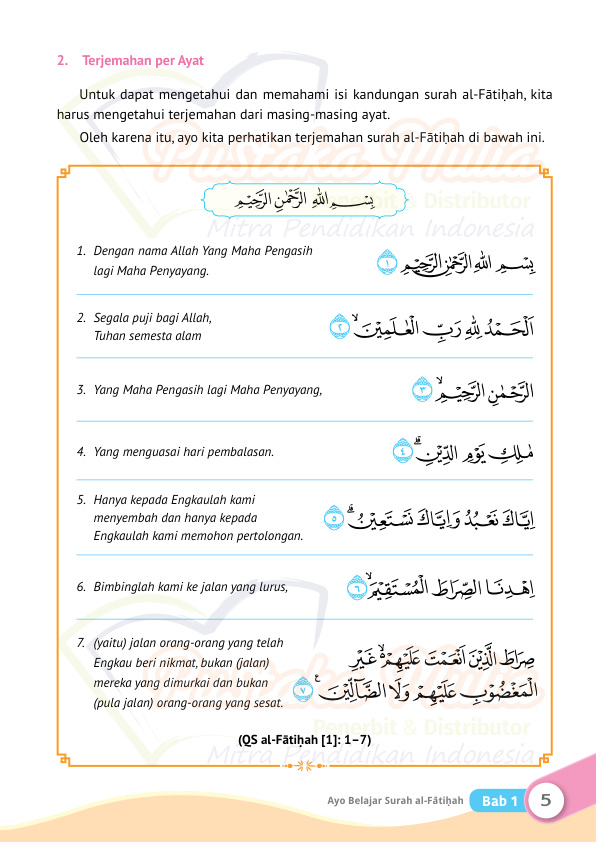 2. Terjemahan per Ayat
Untuk dapat mengetahui dan memahami isi kandungan surah al-Fātiḥah, kita
harus mengetahui terjemahan dari masing-masing ayat.
Oleh karena itu, ayo kita perhatikan terjemahan surah al-Fātiḥah di bawah ini.
Pustaka Mulia
Penerbit & Distributor
Mitra Pendidikan Indonesia
بِسْـــمِ اللّٰهِ الرَّحْمٰنِ الرَّحِيْمِ
1. Dengan nama Allah Yang Maha Pengasih
lagi Maha Penyayang.
بِسْــمِ اللّٰهِ الرَّحْمٰنِ الرَّحِيْمِ ١
2. Segala puji bagi Allah,
Tuhan semesta alam
اَلْحَمْدُ لِلّٰهِ رَبِّ الْعٰلَمِيْنَۙ ٢
3. Yang Maha Pengasih lagi Maha Penyayang,
الرَّحْمٰنِ الرَّحِيْمِۙ ٣
4. Yang menguasai hari pembalasan.
مٰلِكِ يَوْمِ الدِّيْنِۗ ٤
5. Hanya kepada Engkaulah kami
menyembah dan hanya kepada
Engkaulah kami memohon pertolongan.
اِيَّاكَ نَعْبُدُ وَاِيَّاكَ نَسْتَعِيْنُۗ ٥
6. Bimbinglah kami ke jalan yang lurus,
اِهْدِنَا الصِّرَاطَ الْمُسْتَقِيْمَۙ ٦
7. (yaitu) jalan orang-orang yang telah
Engkau beri nikmat, bukan (jalan)
mereka yang dimurkai dan bukan
(pula jalan) orang-orang yang sesat.
صِرَاطَ الَّذِيْنَ اَنْعَمْتَ عَلَيْهِمْۙ غَيْرِ
الْمَغْضُوْبِ عَلَيْهِمْ وَلَا الضَّاۤلِّيْنَࣖ ٧
Pustaka Mulia
Penerbit & Distributor
Mitra Pendidikan Indonesia
(QS al-Fātiḥah [1]: 1–7)
Ayo Belajar Surah al-Fātiḥah Bab 1 5